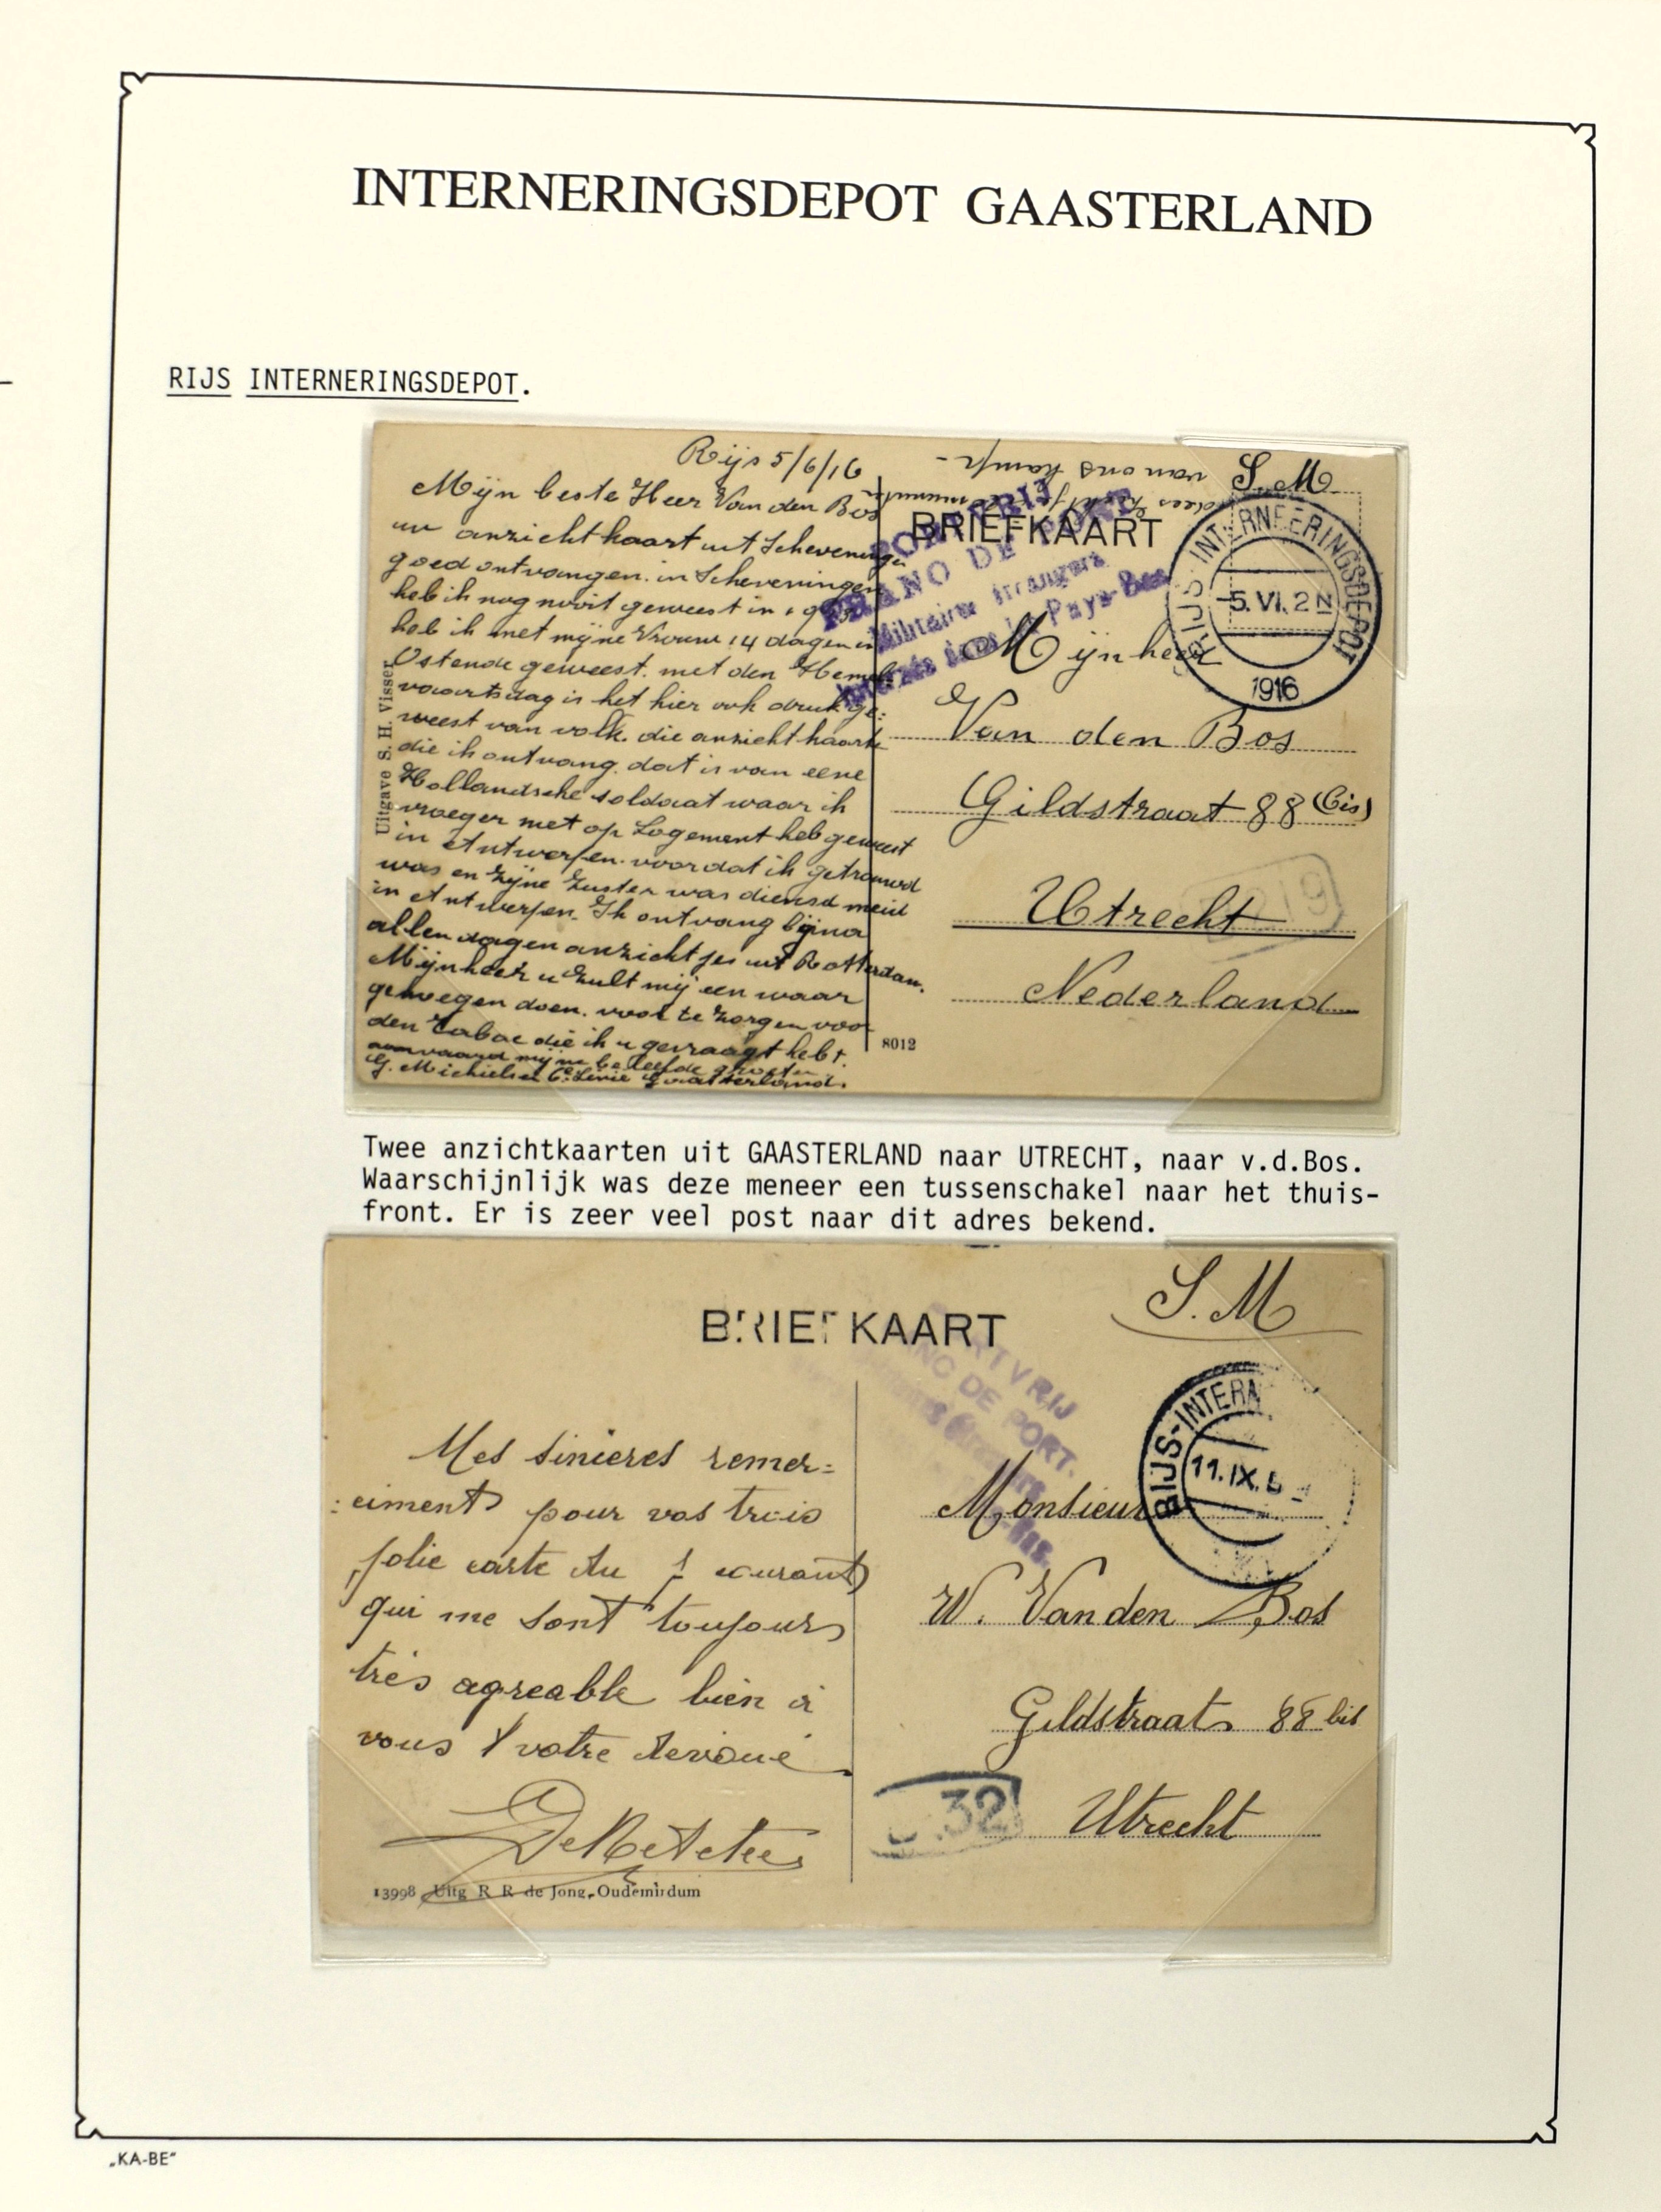 INTERNERINGSDEPOT GAASTERLAND
RIJS INTERNERINGSDEPOT.
Rijs 5/6/16
Mijn beste Heer Van den Bos
uw anzichtkaart uit Scheveningen
goed ontvangen. in Scheveningen
heb ik nog nooit geweest in
heb ik met mijne Vrouw 14 dagen in
Ostende geweest. met den Hemel-
vaartsdag is het hier ook druk ge:
weest van volk. die anzichtkaarte
die ik ontvang. dat is van eene
Hollandsche soldaat waar ik
vroeger met op Logement heb geweest
in Antwerpen. voor dat ik getrouwd
was en Zijne Zuster was diensd meid
in Antwerpen. Ik ontvang bijna
allen dagen anzichtjes uit Rotterdam.
Mijnheer u Zult mij een waar
genoegen doen. voor te Zorgen voor
den Tabac die ik u gevraagt hebt.
aanvaard mijne beleefde groeten
G. Michielsen 6e Linie Gaasterland.
Uitgave S. H. Visser
8012
van ons kamp-
S.M.
BRIEFKAART
PORTVRIJ
FRANO DE PORT
Militaires étrangers
internés dans les Pays-Bas
RIJS-INTERNEERINGSDEPOT
5.VI. 2 N
1916
Mijnheer
Van den Bos
Gildstraat 88 (bis)
Utrecht
Nederland
Twee anzichtkaarten uit GAASTERLAND naar UTRECHT, naar v.d.Bos.
Waarschijnlijk was deze meneer een tussenschakel naar het thuis-
front. Er is zeer veel post naar dit adres bekend.
S.M
BRIEFKAART
PORTVRIJ
DE PORT.
RIJS-INTERN
11.IX.
Mes sincères remer=
:ciments pour vos trois
jolie carte du courant
qui me sont toujours
très agreable bien à
vous votre devoué
13998 Uitg R R de Jong, Oudemirdum
Monsieur
W. Van den Bos
Gildstraat 88 bis
Utrecht
32
„KA-BE"